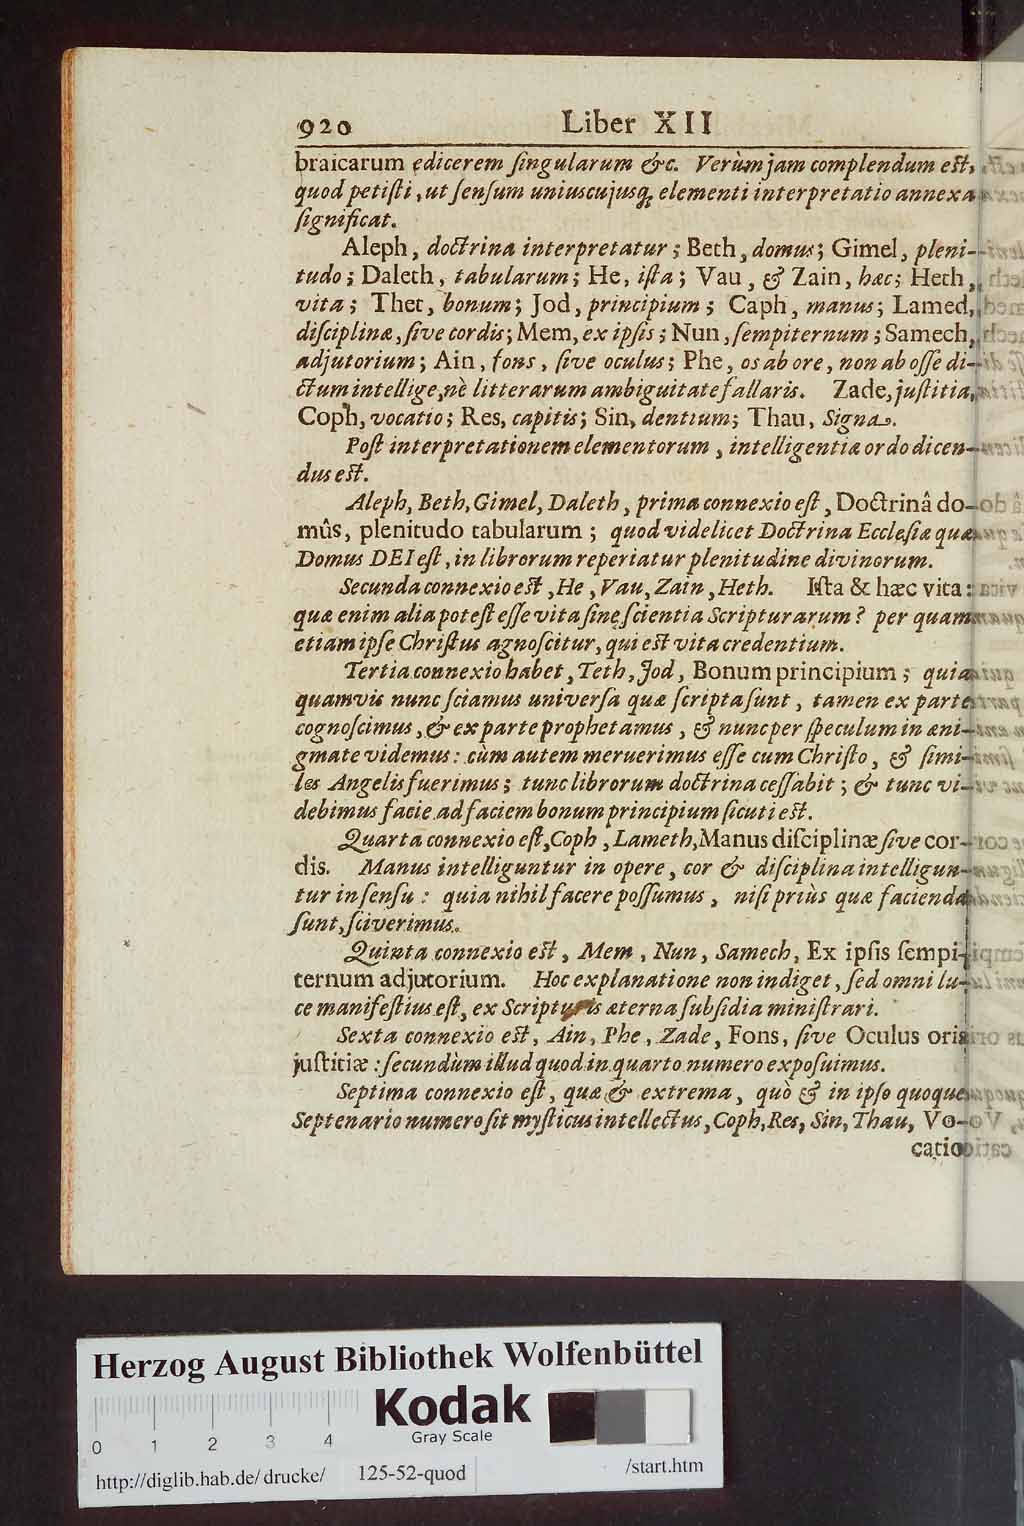 920 Liber XII
braicarum edicerem ſingularum &c. Verùm jam complendum eſt,
quod petiſti, ut ſenſum uniuscujusq; elementi interpretatio annexa
ſignificat.
Aleph, doctrina interpretatur; Beth, domus; Gimel, pleni-
tudo; Daleth, tabularum; He, iſta; Vau, & Zain, hæc; Heth,
vita; Thet, bonum; Jod, principium; Caph, manus; Lamed,
diſciplinæ, ſive cordis; Mem, ex ipſis; Nun, ſempiternum; Samech,
adjutorium; Ain, fons, ſive oculus; Phe, os ab ore, non ab oſſe di-
ctum intellige, nè litterarum ambiguitate fallaris. Zade, juſtitia,
Coph, vocatio; Res, capitis; Sin, dentium; Thau, Signa.
Poſt interpretationem elementorum, intelligentiæ ordo dicen-
dus eſt.
Aleph, Beth, Gimel, Daleth, prima connexio eſt, Doctrinâ do-
mûs, plenitudo tabularum; quod videlicet Doctrina Eccleſiæ quæ
Domus DEI eſt, in librorum reperiatur plenitudine divinorum.
Secunda connexio eſt, He, Vau, Zain, Heth. Iſta & hæc vita:
quæ enim alia poteſt eſſe vita ſine ſcientia Scripturarum? per quam
etiam ipſe Chriſtus agnoſcitur, qui eſt vita credentium.
Tertia connexio habet, Teth, Jod, Bonum principium; quia
quamvis nunc ſciamus univerſa quæ ſcripta ſunt, tamen ex parte
cognoſcimus, & ex parte prophetamus, & nunc per ſpeculum in æni-
gmate videmus: cùm autem meruerimus eſſe cum Chriſto, & ſimi-
les Angelis fuerimus; tunc librorum doctrina ceſſabit; & tunc vi-
debimus facie ad faciem bonum principium ſicuti eſt.
Quarta connexio eſt, Coph, Lameth, Manus diſciplinæ ſive cor-
dis. Manus intelliguntur in opere, cor & diſciplina intelligun-
tur in ſenſu: quia nihil facere poſſumus, niſi priùs quæ facienda
ſunt, ſciverimus.
Quinta connexio eſt, Mem, Nun, Samech, Ex ipſis ſempi-
ternum adjutorium. Hoc explanatione non indiget, ſed omni lu-
ce manifeſtius eſt, ex Scripturis æterna ſubſidia miniſtrari.
Sexta connexio eſt, Ain, Phe, Zade, Fons, ſive Oculus oris
juſtitiæ: ſecundùm illud quod in quarto numero expoſuimus.
Septima connexio eſt, quæ & extrema, quò & in ipſo quoque
Septenario numero ſit myſticus intellectus, Coph, Res, Sin, Thau, Vo-
catio
Herzog August Bibliothek Wolfenbüttel
0 1 2 3 4
Kodak
Gray Scale
http://diglib.hab.de/drucke/ 125-52-quod /start.htm